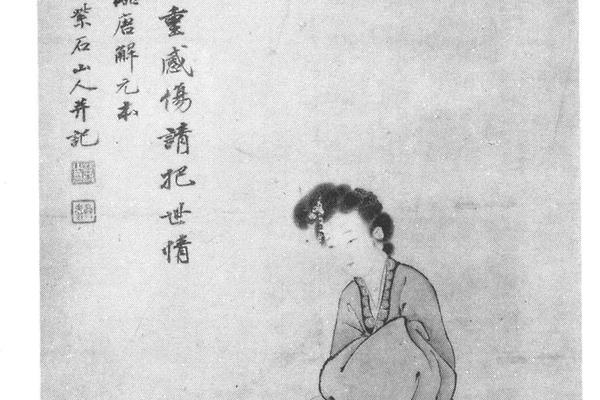 重感傷請把世情
唐解元本
紫石山人并記